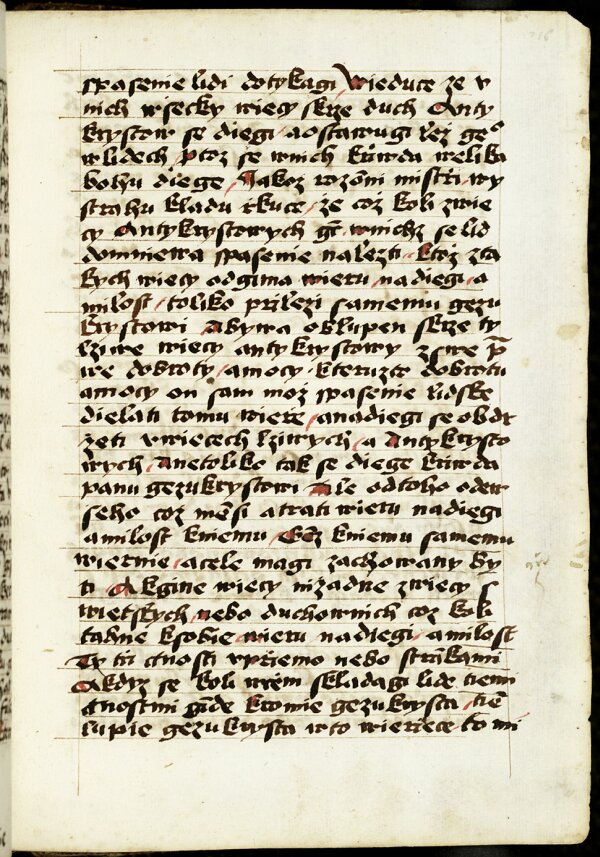 spasenie lidi dotykagi Wieduce ze v
nich wsecky wiecy skrze duch Anty
krystow se diegi a ostawugi lez geº
w lidech ptoz se wnich kriwda welika
bohu diege Jakoz rozōni mistři wy
strahu kladu rkuce ze coz koli zwie
cy Antykrystowych gt wnichz se lid
domniewa spasenie nalezti ktoz zta
kych wiecy odgima wieru nadiegi a
milost toliko přilezi samemu gezu
krystowi Abywa oblupen skrze ty
lziwe wiecy antykrystowy z swe p
we dobroty amocy kteruzto dobrotu
amocy on sam moz spasenie lidske
dielati tomu wiere anadiegi se obdr
zeti vwiecech lziwych a Antykrysto
wych Anetoliko tak se diege kriwda
panu gezukrystowi Ale odtoho odew
seho coz mēsi a trati wieru nadiegi
amilost kniemu Genz kniemu samemu
wiernie acele magi zachowany by
ti Akgine wiecy nizadne zwiecy s
wietskych nebo duchownich coz koli
tahne ksobie wieru nadiegi amilost
Ty tři ctnosti vpřiemo nebo strākami
Akdyz se koli wnem skladagi lide tiemi
ctnostmi gide kromie gezukrysta tiē
lupie gezukrysta wto wieriece to mi